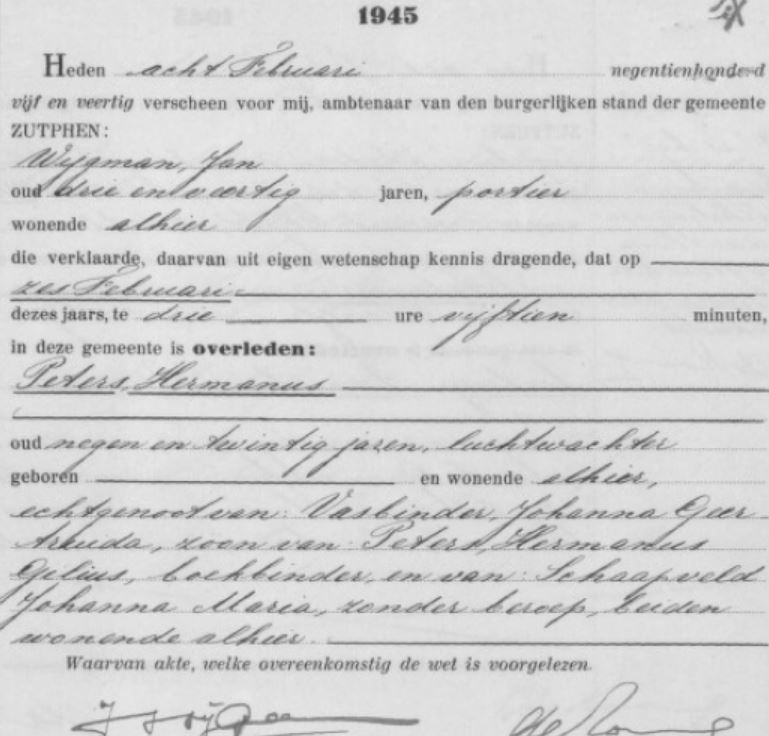 1945
Heden acht Februari negentienhonderd
vijf en veertig verscheen voor mij, ambtenaar van den burgerlijken stand der gemeente
ZUTPHEN:
Wijgman, Jan
oud drie en veertig jaren, portier
wonende alhier
die verklaarde, daarvan uit eigen wetenschap kennis dragende, dat op
zes Februari
dezes jaars, te drie ure vijftien minuten,
in deze gemeente is overleden:
Peters, Hermanus
oud negen en twintig jaren, luchtwachter
geboren en wonende alhier,
echtgenoot van: Vasbinder, Johanna Geer
truida, zoon van: Peters, Hermanus
Gilius, boekbinder, en van: Schaapveld
Johanna Maria, zonder beroep, beiden
wonende alhier.
Waarvan akte, welke overeenkomstig de wet is voorgelezen.